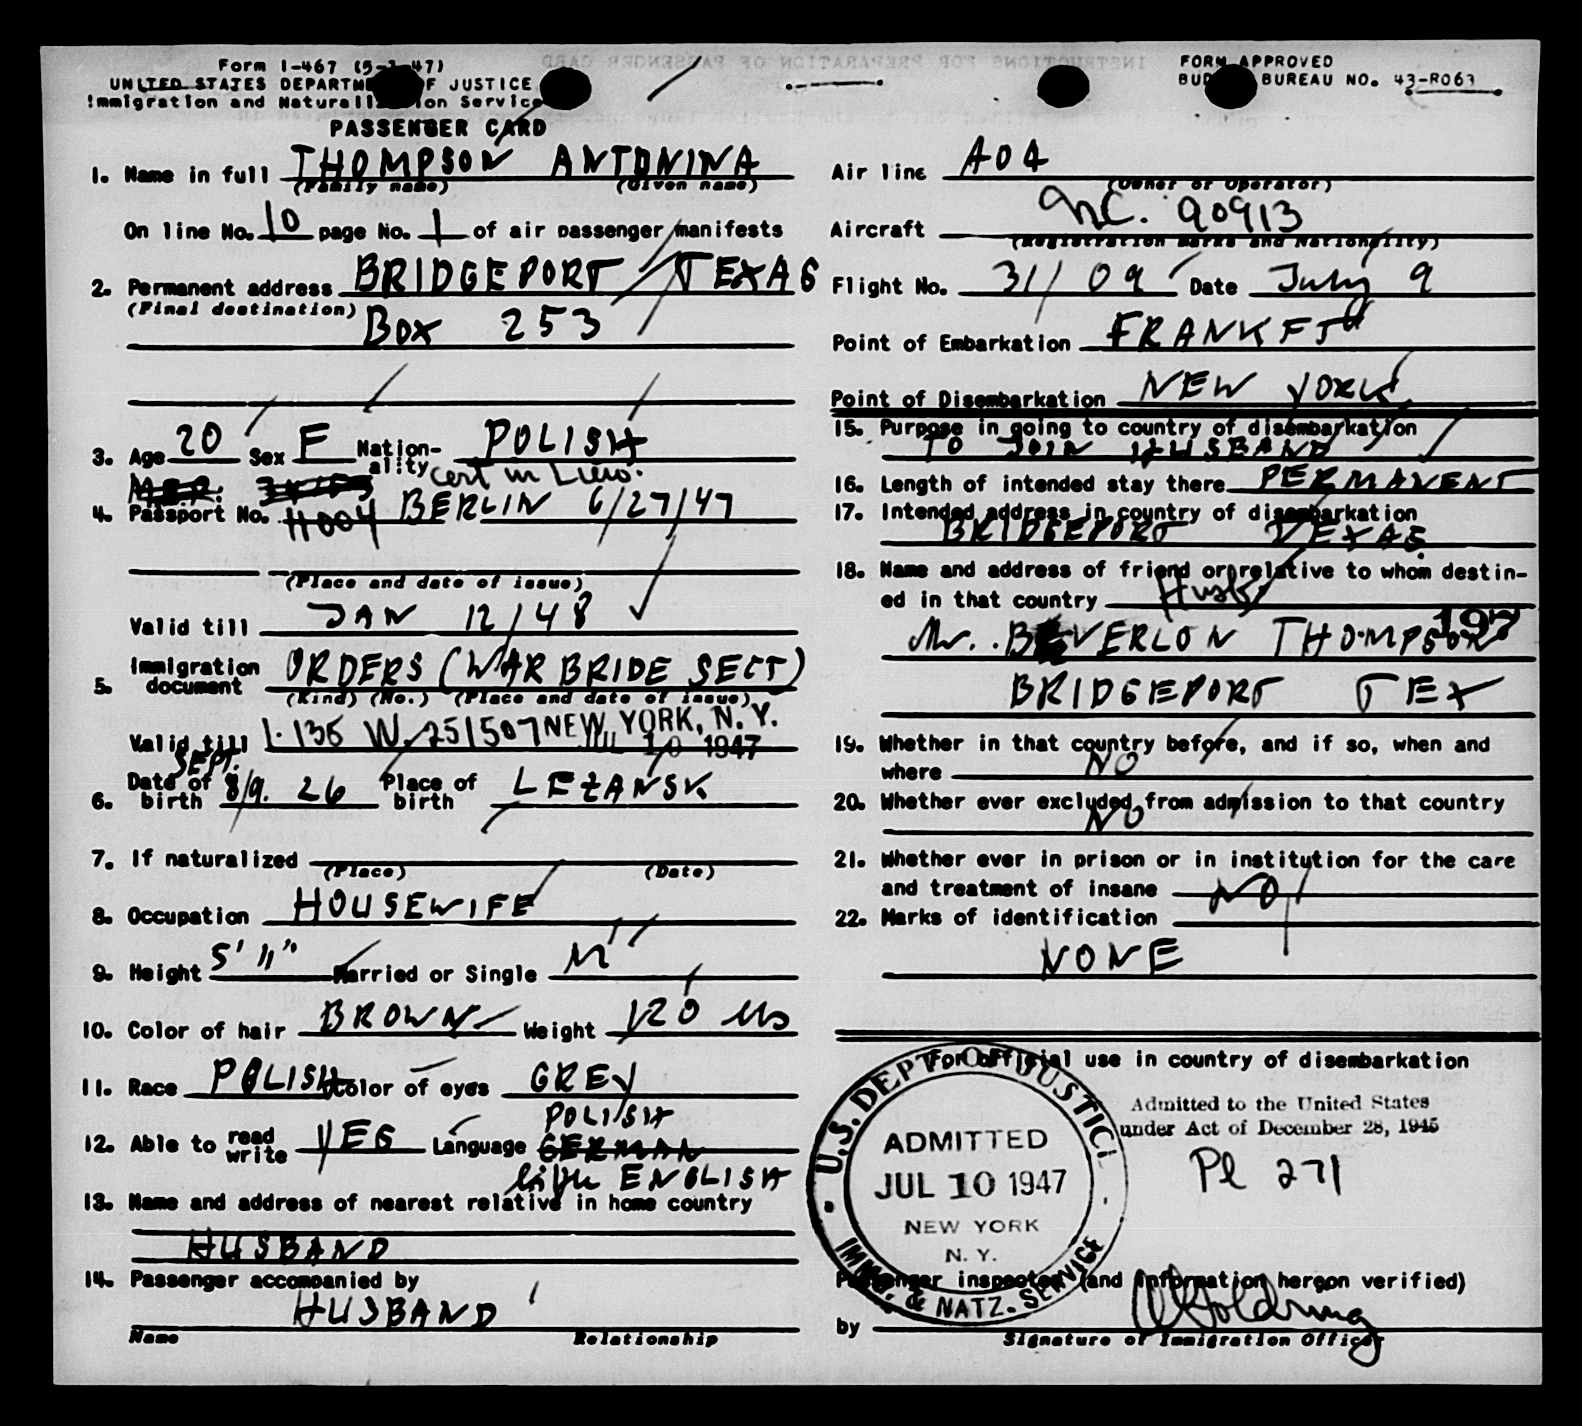 Form I-467 (5-1-47)
UNITED STATES DEPARTMENT OF JUSTICE
Immigration and Naturalization Service
FORM APPROVED
BUDGET BUREAU NO. 43-R063
PASSENGER CARD
1. Name in full THOMPSON ANTONINA
(Family name) (Given name)
On line No. 10 page No. 1 of air passenger manifests
2. Permanent address BRIDGEPORT TEXAS
(Final destination) BOX 253
3. Age 20 Sex F Nationality POLISH
cert in Lieu.
4. Passport No. H004 BERLIN 6/27/47
(Place and date of issue)
Valid till JAN 12/48
5. Immigration document ORDERS (WAR BRIDE SECT)
(Kind) (No.) (Place and date of issue)
Valid till I-135 W. 251507 NEW YORK, N.Y.
JUL 10 1947
SEPT.
6. Date of birth 8/9. 26 Place of birth LEŻANSK
7. If naturalized
(Place) (Date)
8. Occupation HOUSEWIFE
9. Height 5' 11" Married or Single M
10. Color of hair BROWN Weight 120 lbs
11. Race POLISH Color of eyes GREY
POLISH
12. Able to read write YES Language GERMAN
little ENGLISH
13. Name and address of nearest relative in home country
HUSBAND
14. Passenger accompanied by
HUSBAND
Name Relationship
Air line AOA
(Owner or Operator)
Aircraft NC. 90913
(Registration marks and Nationality)
Flight No. 31/09 Date July 9
Point of Embarkation FRANKFT
Point of Disembarkation NEW YORK
15. Purpose in going to country of disembarkation
TO JOIN HUSBAND
16. Length of intended stay there PERMANENT
17. Intended address in country of disembarkation
BRIDGEPORT TEXAS
18. Name and address of friend or relative to whom destin-
ed in that country Husb
197
Mr. BEVERLON THOMPSON
BRIDGEPORT TEX
19. Whether in that country before, and if so, when and
where NO
20. Whether ever excluded from admission to that country
NO
21. Whether ever in prison or in institution for the care
and treatment of insane NO
22. Marks of identification
NONE
For official use in country of disembarkation
Admitted to the United States
under Act of December 28, 1945
Pl 271
U.S. DEPT. OF JUSTICE
ADMITTED
JUL 10 1947
NEW YORK
N. Y.
IMM. & NATZ. SERVICE
Passenger inspected (and information hereon verified)
by
Signature of Immigration Officer